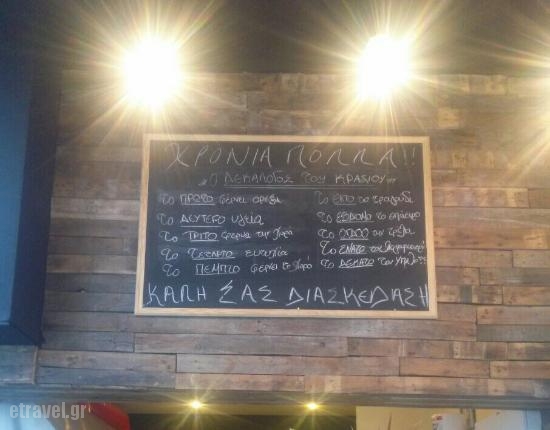 ΧΡΟΝΙΑ ΠΟΛΛΑ!!
Ο ΔΕΚΑΛΟΓΟΣ ΤΟΥ ΚΡΑΣΙΟΥ
Το ΠΡΩΤΟ φέρνει όρεξη
Το ΔΕΥΤΕΡΟ υγεία
Το ΤΡΙΤΟ φέρνει την
Το ΤΕΤΑΡΤΟ ευτυχία
Το ΠΕΜΠΤΟ φέρνει
Το ΕΚΤΟ το τραγούδι
Το ΕΒΔΟΜΟ το
Το ΟΓΔΟΟ την τρέλα
Το ΕΝΑΤΟ τον
Το ΔΕΚΑΤΟ τον
ΚΑΛΗ ΣΑΣ ΔΙΑΣΚΕΔΑΣΗ
etravel.gr